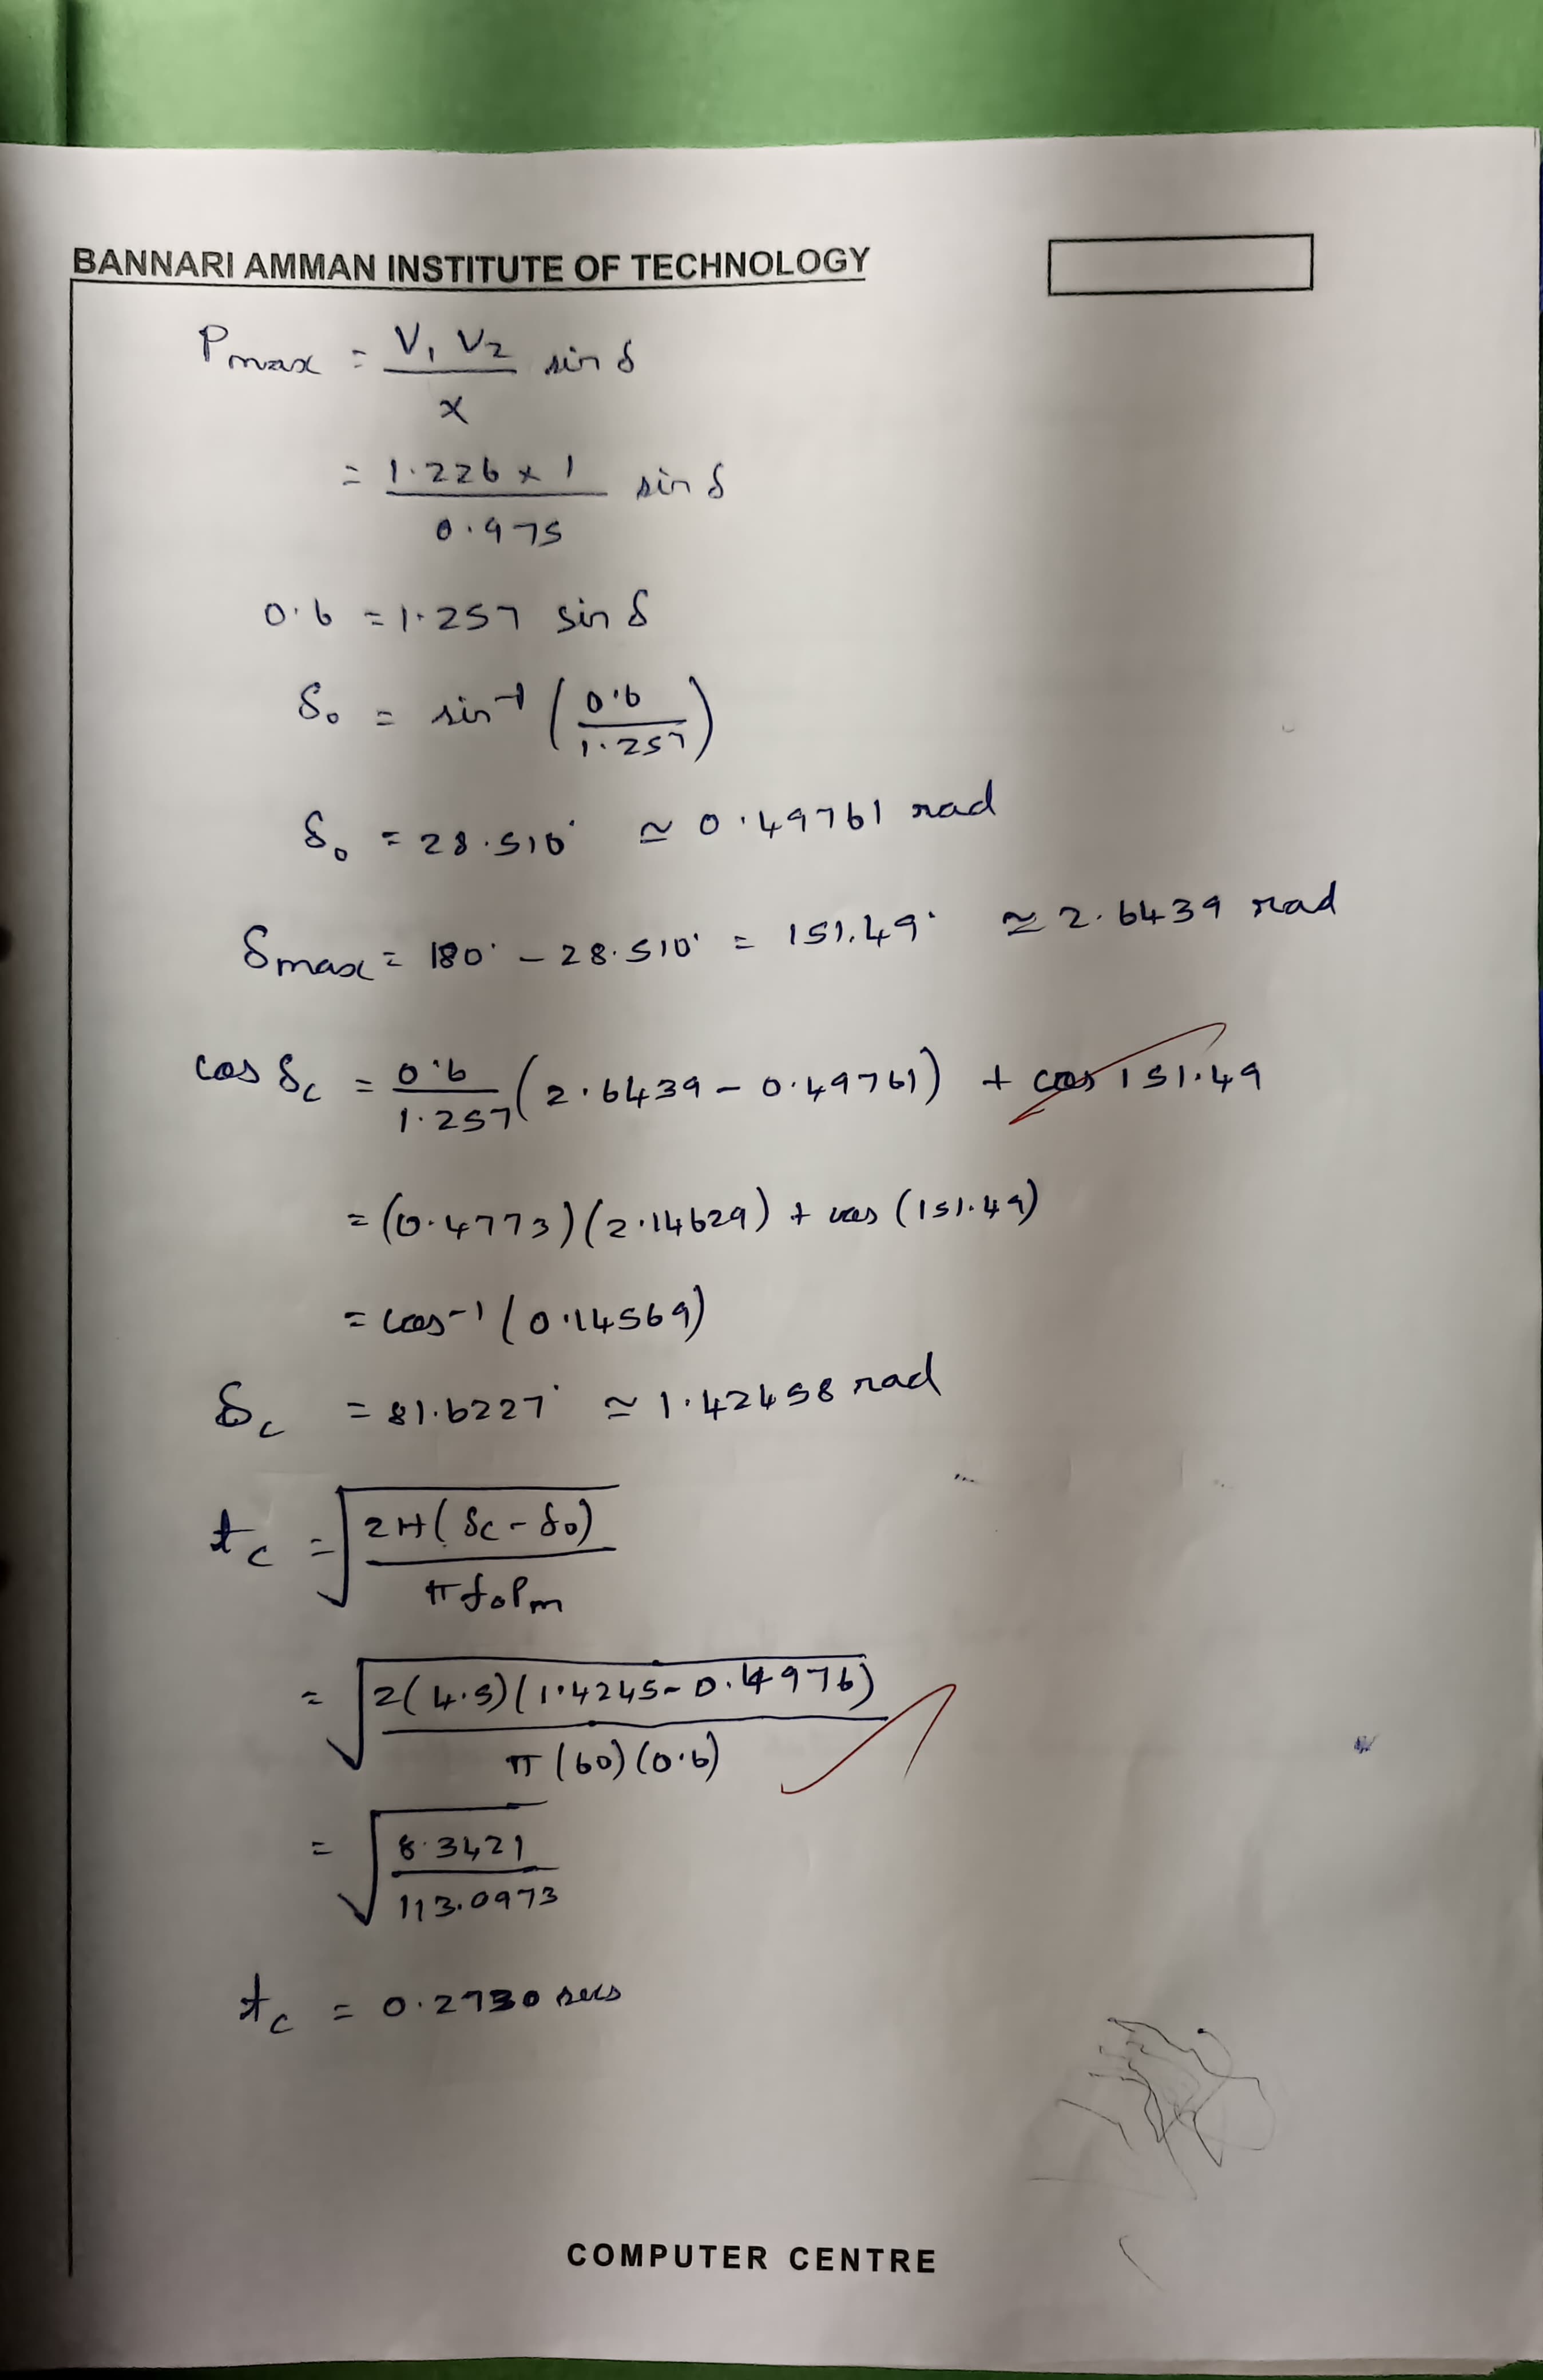 BANNARI AMMAN INSTITUTE OF TECHNOLOGY
Pmax = V₁ V₂ / x sin δ
= 1.226 x 1 / 0.975 sin δ
0.6 = 1.257 sin δ
δ₀ = sin⁻¹ (0.6 / 1.257)
δ₀ = 28.510° ≃ 0.49761 rad
δmax = 180° - 28.510° = 151.49° ≃ 2.6439 rad
cos δc = 0.6 / 1.257 (2.6439 - 0.49761) + cos 151.49
= (0.4773)(2.14629) + cos (151.49)
= cos⁻¹ (0.14569)
δc = 81.6227° ≃ 1.42458 rad
tc = √(2H(δc - δ₀) / πf₀Pm)
= √(2(4.5)(1.4245 - 0.4976) / π(60)(0.6))
= √(8.3421 / 113.0973)
tc = 0.2730 secs
COMPUTER CENTRE